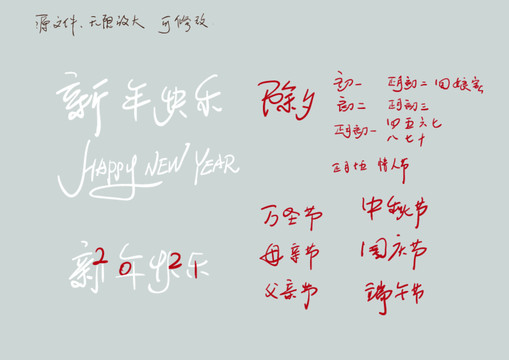 源文件、无限放大 可修改
新年快乐
HAPPY NEW YEAR
新年快乐
2021
除夕
初一 正月初二 回娘家
初二 正月初三
正月初一 四五六七
八七十
正月十五 情人节
万圣节 中秋节
母亲节 国庆节
父亲节 端午节